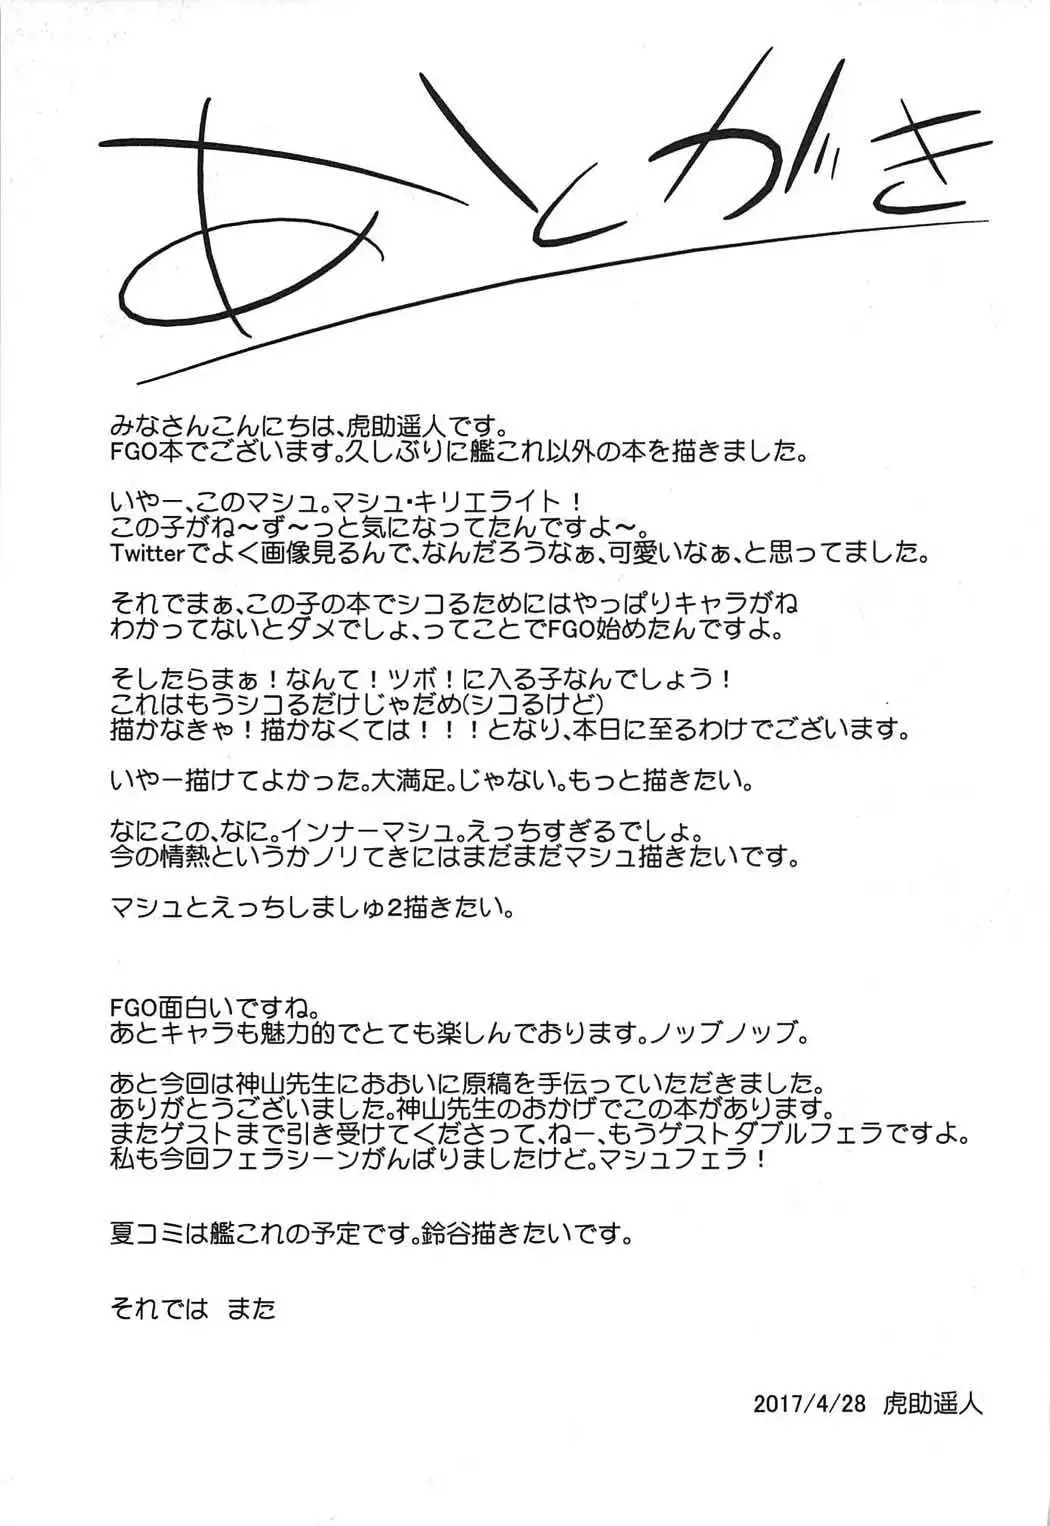 あとがき
みなさんこんにちは、虎助遥人です。
FGO本でございます。久しぶりに艦これ以外の本を描きました。
いやー、このマシュ。マシュ・キリエライト！
この子がね～ず～っと気になってたんですよ～。
Twitterでよく画像見るんで、なんだろうなぁ、可愛いなぁ、と思ってました。
それでまぁ、この子の本でシコるためにはやっぱりキャラがね
わかってないとダメでしょ、ってことでFGO始めたんですよ。
そしたらまぁ！なんて！ツボ！に入る子なんでしょう！
これはもうシコるだけじゃだめ(シコるけど)
描かなきゃ！描かなくては！！！となり、本日に至るわけでございます。
いやー描けてよかった。大満足。じゃない。もっと描きたい。
なにこの、なに。インナーマシュ。えっちすぎるでしょ。
今の情熱というかノリてきにはまだまだマシュ描きたいです。
マシュとえっちしましゅ2描きたい。
FGO面白いですね。
あとキャラも魅力的でとても楽しんでおります。ノッブノッブ。
あと今回は神山先生におおいに原稿を手伝っていただきました。
ありがとうございました。神山先生のおかげでこの本があります。
またゲストまで引き受けてくださって、ねー、もうゲストダブルフェラですよ。
私も今回フェラシーンがんばりましたけど。マシュフェラ！
夏コミは艦これの予定です。鈴谷描きたいです。
それでは また
2017/4/28 虎助遥人